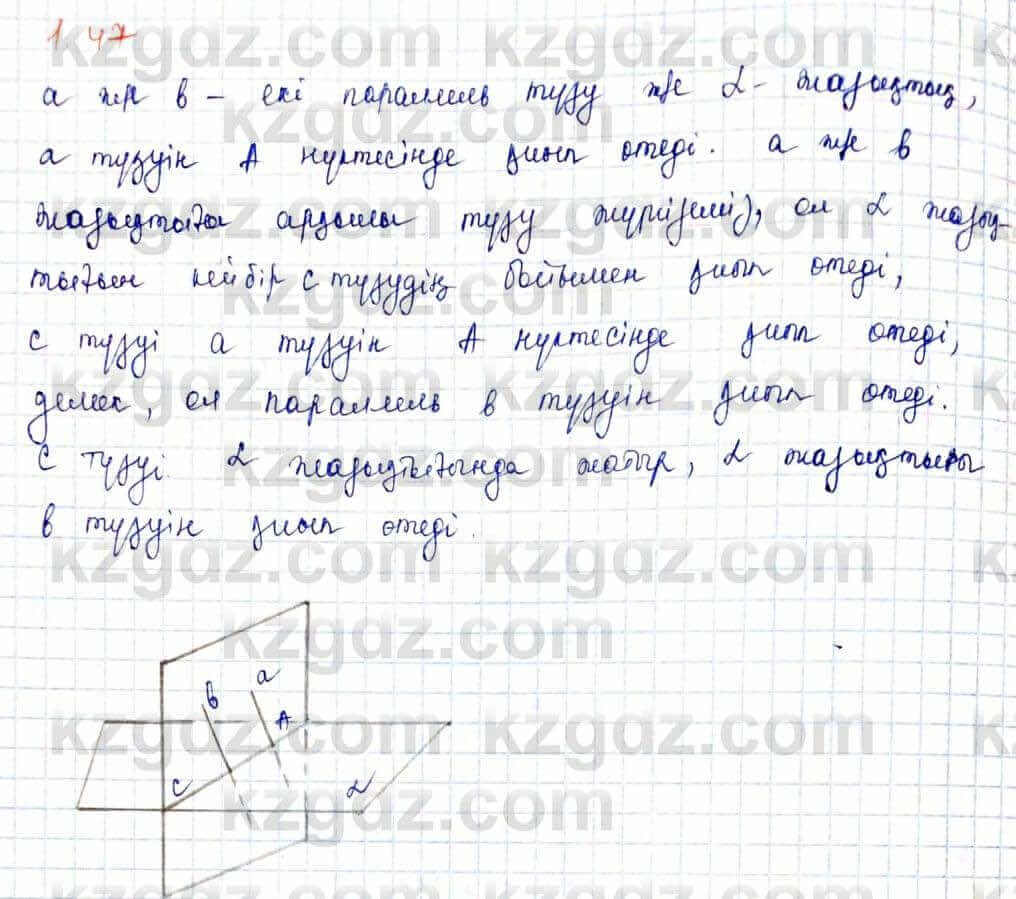 1.47
kzgdz.com
а ж/е в – екі параллель түзу ж/е α- жазықтық,
а түзуін А нүктесінде қиып өтеді. а ж/е в
жазықтыға арқылы түзу жүргіземіз, ол α жазық-
тығын кейбір с түзудің бойымен қиып өтеді,
с түзуі а түзуін А нүктесінде қиып өтеді,
демек, ол параллель в түзуін қиып өтеді.
с түзуі α жазықтығында жатыр, α жазықтығы
в түзуін қиып өтеді.
в а
А
с α